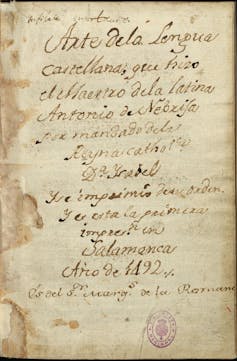 Arte de la Lengua
castellana, que hizo
el Maestro de la latina
Antonio de Nebrija
por mandado de la
Reyna catholica
Dª Ysabel
Y se imprimió de su orden.
Y es esta la primera
impresn en
Salamanca
Año de 1492.
Es del Sr. Marqs. de la Romana